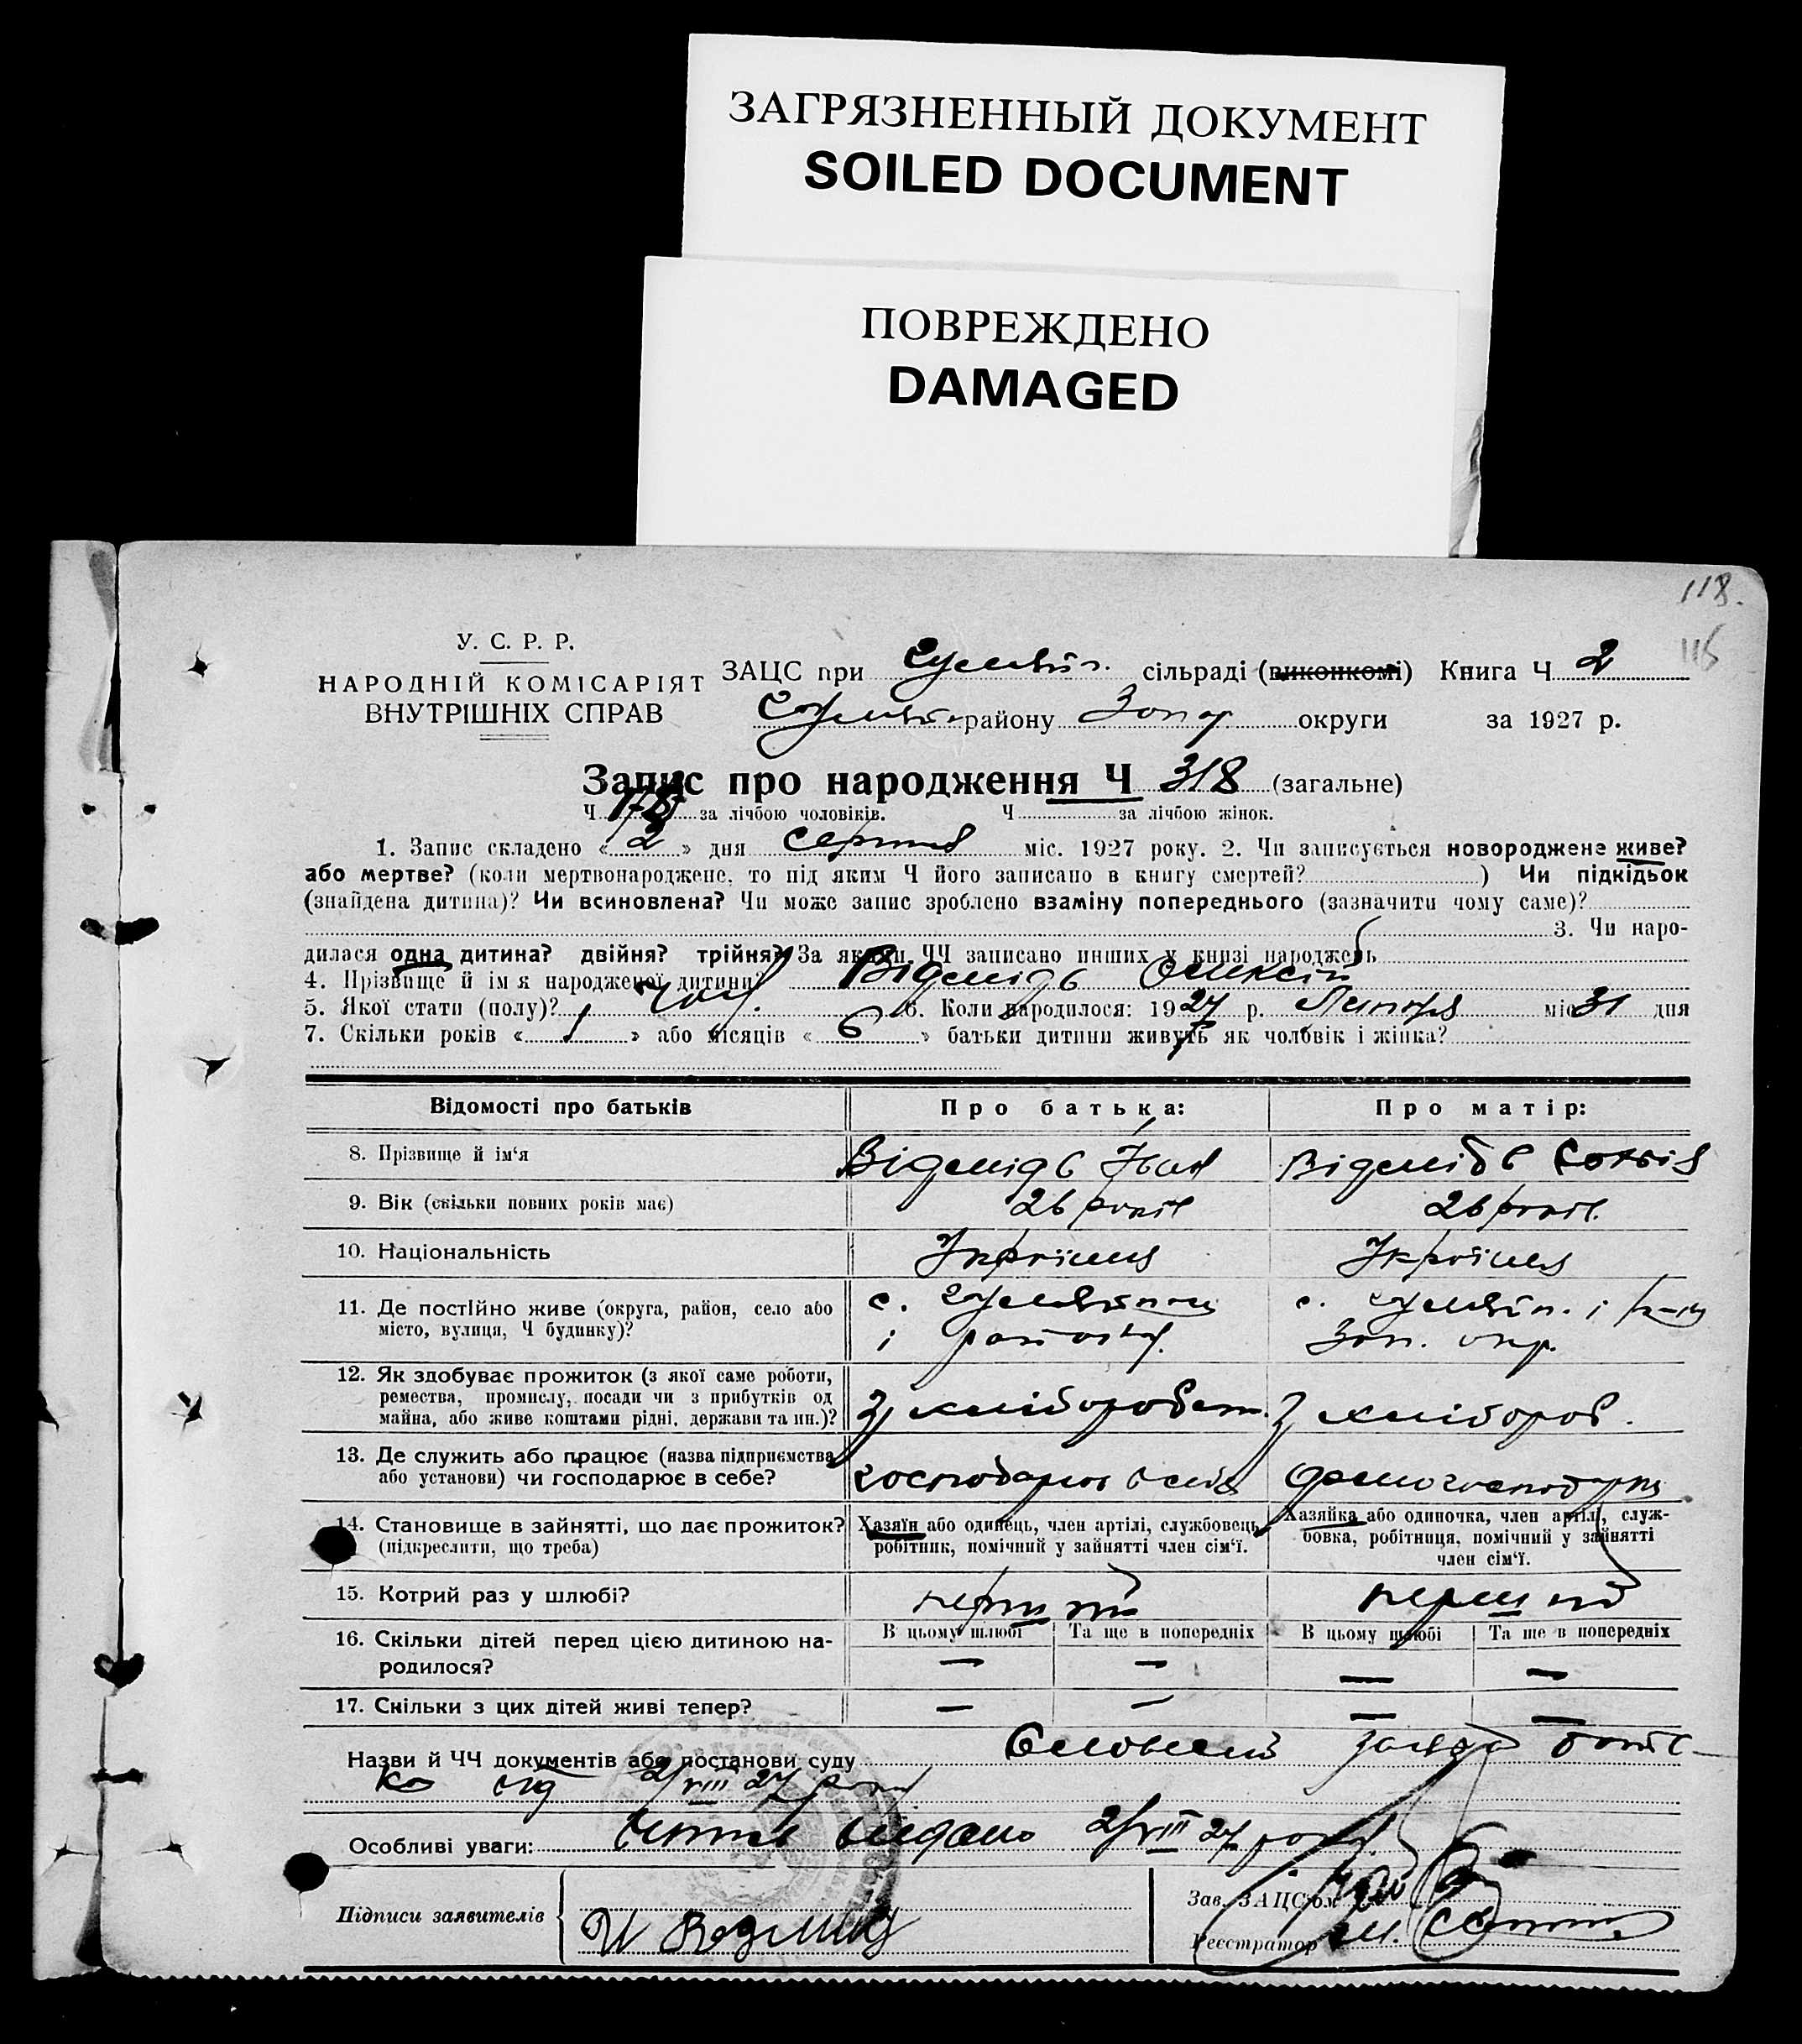 ЗАГРЯЗНЕННЫЙ ДОКУМЕНТ
SOILED DOCUMENT
ПОВРЕЖДЕНО
DAMAGED
118.
116
У. С. Р. Р.
НАРОДНІЙ КОМІСАРІЯТ
ВНУТРІШНІХ СПРАВ
ЗАЦС при сільраді (виконкомі) Книга Ч 2
району Запор. округи за 1927 р.
Запис про народження Ч 318 (загальне)
Ч за лічбою чоловіків. Ч за лічбою жінок.
1. Запис складено « 2 » дня серпня міс. 1927 року. 2. Чи записується новороджене живе?
або мертве? (коли мертвонароджене, то під яким Ч його записано в книгу смертей? ) Чи підкідьок
(знайдена дитина)? Чи всиновлена? Чи може запис зроблено взаміну попереднього (зазначити чому саме)?
3. Чи наро-
дилася одна дитина? двійня? трійня? За якими ЧЧ записано инших у книзі народжень
4. Прізвище й ім'я народженої дитини? Відмідь Олексій
5. Якої стати (полу)? чол. 6. Коли народилося: 1927 р. Липня міс 31 дня
7. Скільки років « 1 » або місяців « 6 » батьки дитини живуть як чоловік і жінка?
Відомості про батьків
Про батька:
Про матір:
8. Прізвище й ім'я
Відмідь Іван
Відмідь Софія
9. Вік (скільки повних років має)
26 років
26 років.
10. Національність
Українець
Українка
11. Де постійно живе (округа, район, село або
місто, вулиця, Ч будинку)?
с.
і
с. і р-ну
Зап. окр.
12. Як здобуває прожиток (з якої саме роботи,
ремества, промислу, посади чи з прибутків од
майна, або живе коштами рідні, держави та ин.)?
З хліборобст.
З хлібороб.
13. Де служить або працює (назва підприємства
або установи) чи господарює в себе?
господарює в себе
домогосподарка
14. Становище в зайнятті, що дає прожиток?
(підкреслити, що треба)
Хазяїн або одинець, член артілі, службовець,
робітник, помічний у зайнятті член сім'ї.
Хазяйка або одиночка, член артілі, служ-
бовка, робітниця, помічний у зайнятті
член сім'ї.
15. Котрий раз у шлюбі?
перший
перший
16. Скільки дітей перед цією дитиною на-
родилося?
В цьому шлюбі Та ще в попередніх В цьому шлюбі Та ще в попередніх
— — — —
17. Скільки з цих дітей живі тепер?
— — — —
Назви й ЧЧ документів або постанови суду Словесний заява бать-
ка від 2/VIII 27 року
Особливі уваги: Витяг видано 2/VIII 27 року.
Підписи заявителів
Зав. ЗАЦС'ом
Реєстратор